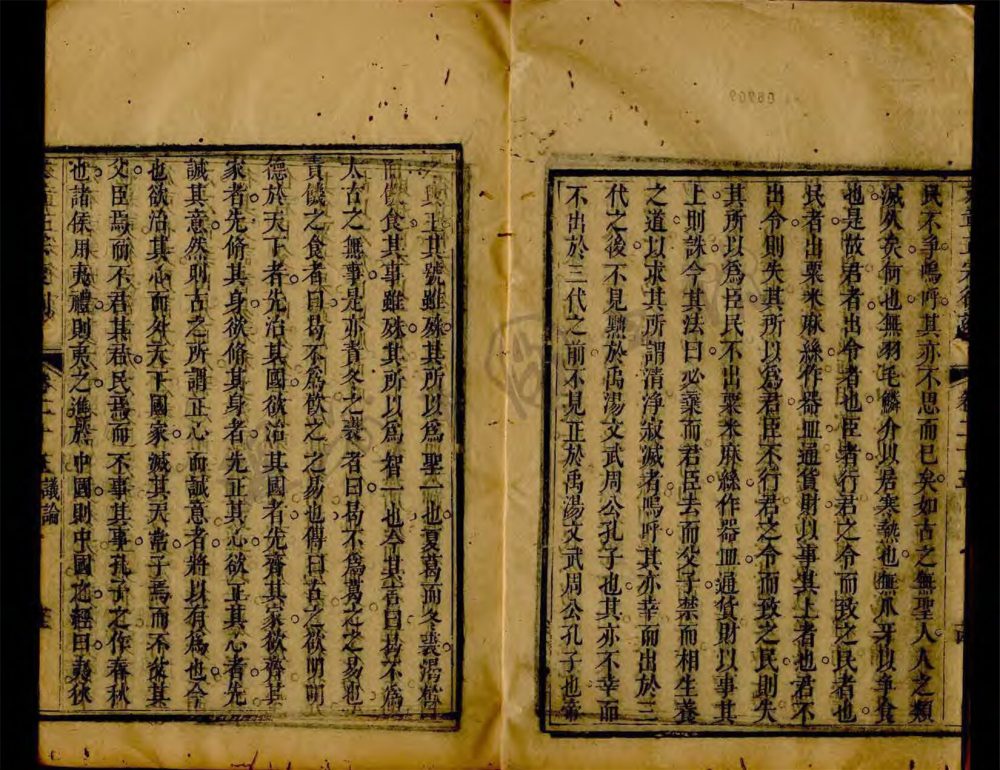 民不爭嗚呼其亦不思而已矣如古之無聖人人之類
滅久矣何也無羽毛鱗介以居寒熱也無爪牙以爭食
也是故君者出令者也臣者行君之令而致之民者也
民者出粟米麻絲作器皿通貨財以事其上者也君不
出令則失其所以爲君臣不行君之令而致之民則失
其所以爲臣民不出粟米麻絲作器皿通貨財以事其
上則誅今其法曰必棄而君臣去而父子禁而相生養
之道以求其所謂清淨寂滅者嗚呼其亦幸而出於三
代之後不見黜於禹湯文武周公孔子也其亦不幸而
不出於三代之前不見正於禹湯文武周公孔子也帝
之與王其號雖殊其所以爲聖一也夏葛而冬裘渴飲
而飢食其事雖殊其所以爲智一也今其言曰曷不爲
太古之無事是亦責冬之裘者曰曷不爲葛之之易也
責饑之食者曰曷不爲飲之之易也傳曰古之欲明明
德於天下者先治其國欲治其國者先齊其家欲齊其
家者先脩其身欲脩其身者先正其心欲正其心者先
誠其意然則古之所謂正心而誠意者將以有爲也今
也欲治其心而外天下國家滅其天常子焉而不父其
父臣焉而不君其君民焉而不事其事孔子之作春秋
也諸侯用夷禮則夷之進於中國則中國之經曰夷狄
議論